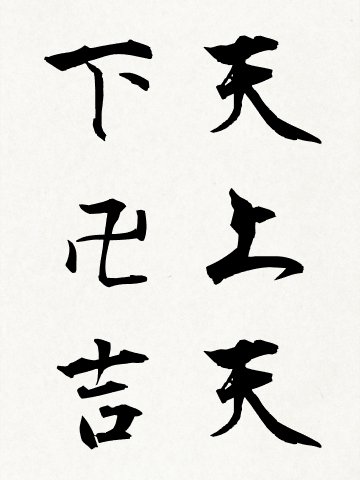 天上天
下卍吉